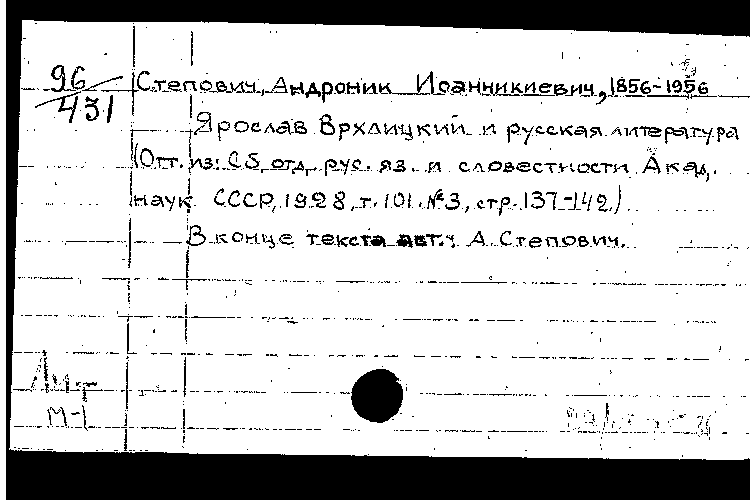 96/431
Степович, Андроник Иоанникиевич, 1856-1956
Ярослав Врхлицкий и русская литература
(Отт. из: Сб. отд. рус. яз. и словестности Акад.
наук СССР, 1928, т. 101. №3, стр. 137-142.)
В конце текста авт.: А. Степович.
Лит
М-1